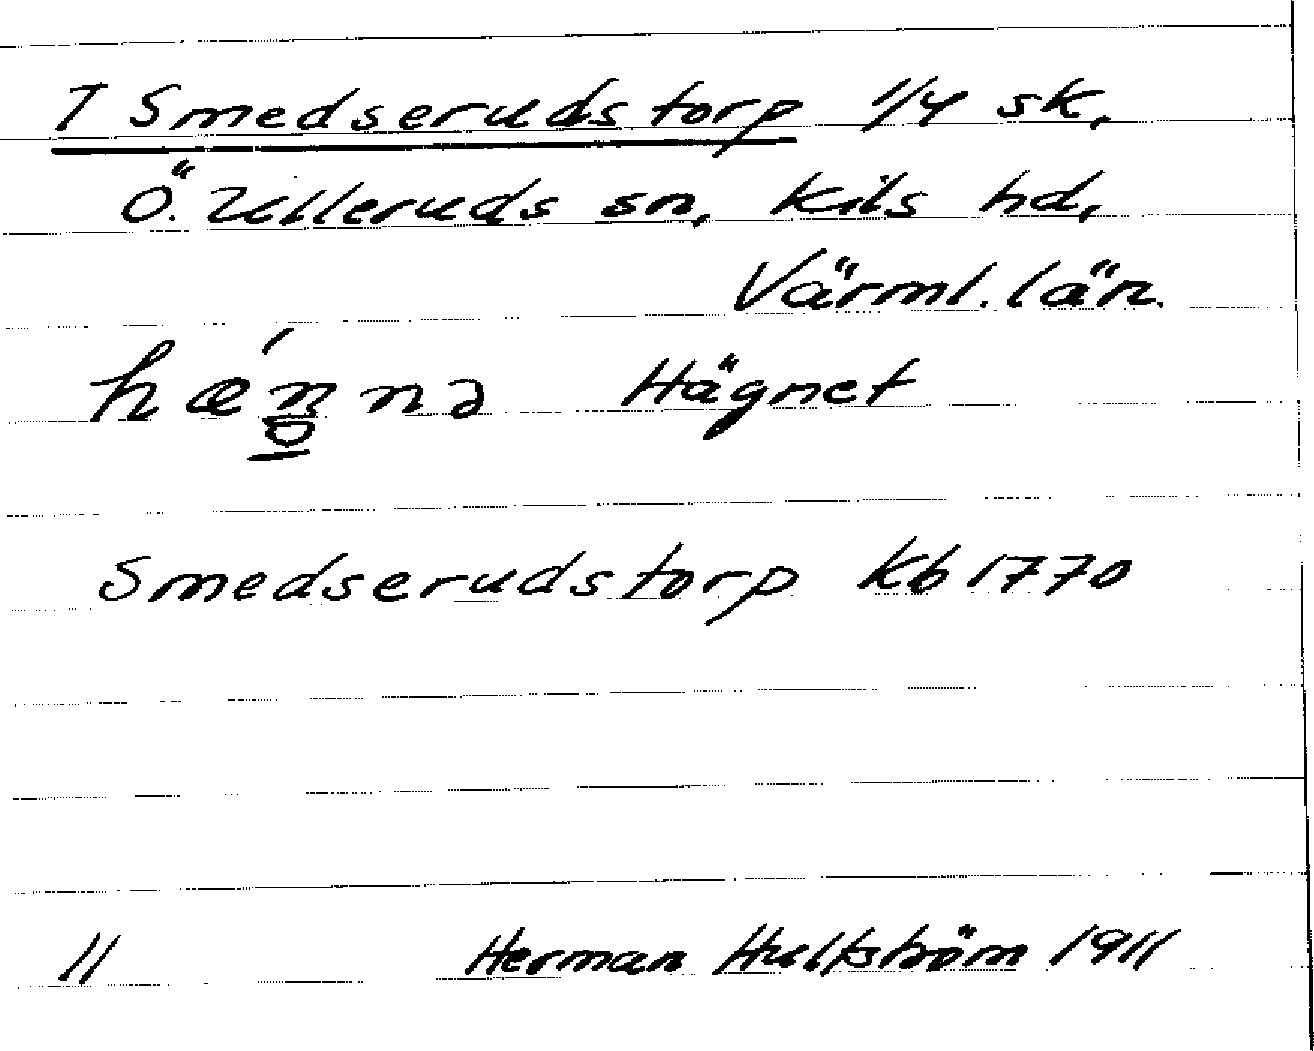 T Smedserudstorp 1/4 sk.
Ö. Ulleruds sn, Kils hd,
Värml. län.
hǽn̥nə Hägnet
Smedserudstorp Kb 1770
11 Herman Hultström 1911